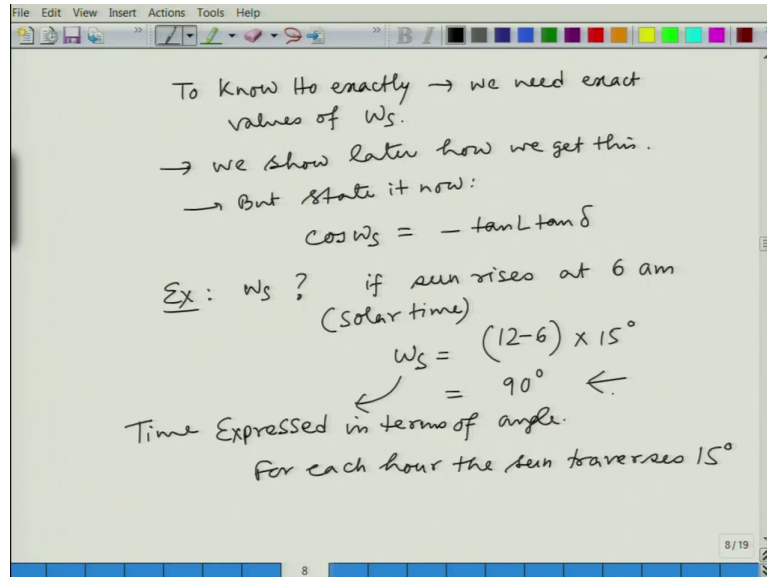 File Edit View Insert Actions Tools Help
To Know Ho exactly → we need exact
values of Ws.
→ we show later how we get this.
→ But state it now:
cos ws = - tan L tan δ
Ex : Ws ? if sun rises at 6 am
(solar time)
Ws = (12-6) × 15°
= 90° ←
Time Expressed in terms of angle.
For each hour the sun traverses 15°
8/19
8